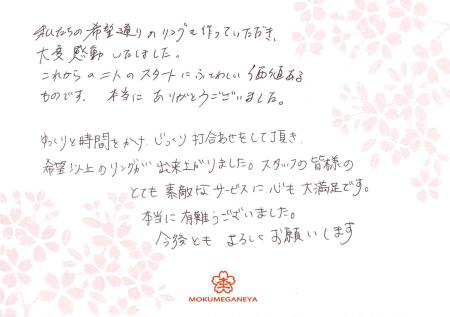 私たちの希望通りのリングを作っていただき、
大変感動しました。
これからの二人のスタートにふさわしい価値ある
ものです。本当にありがとうございました。
ゆっくりと時間をかけ、じっくり打合わせをして頂き、
希望以上のリングが出来上がりました。スタッフの皆様の
とても素敵なサービスに、心も大満足です。
本当に有難うございました。
今後ともよろしくお願いします
MOKUMEGANEYA